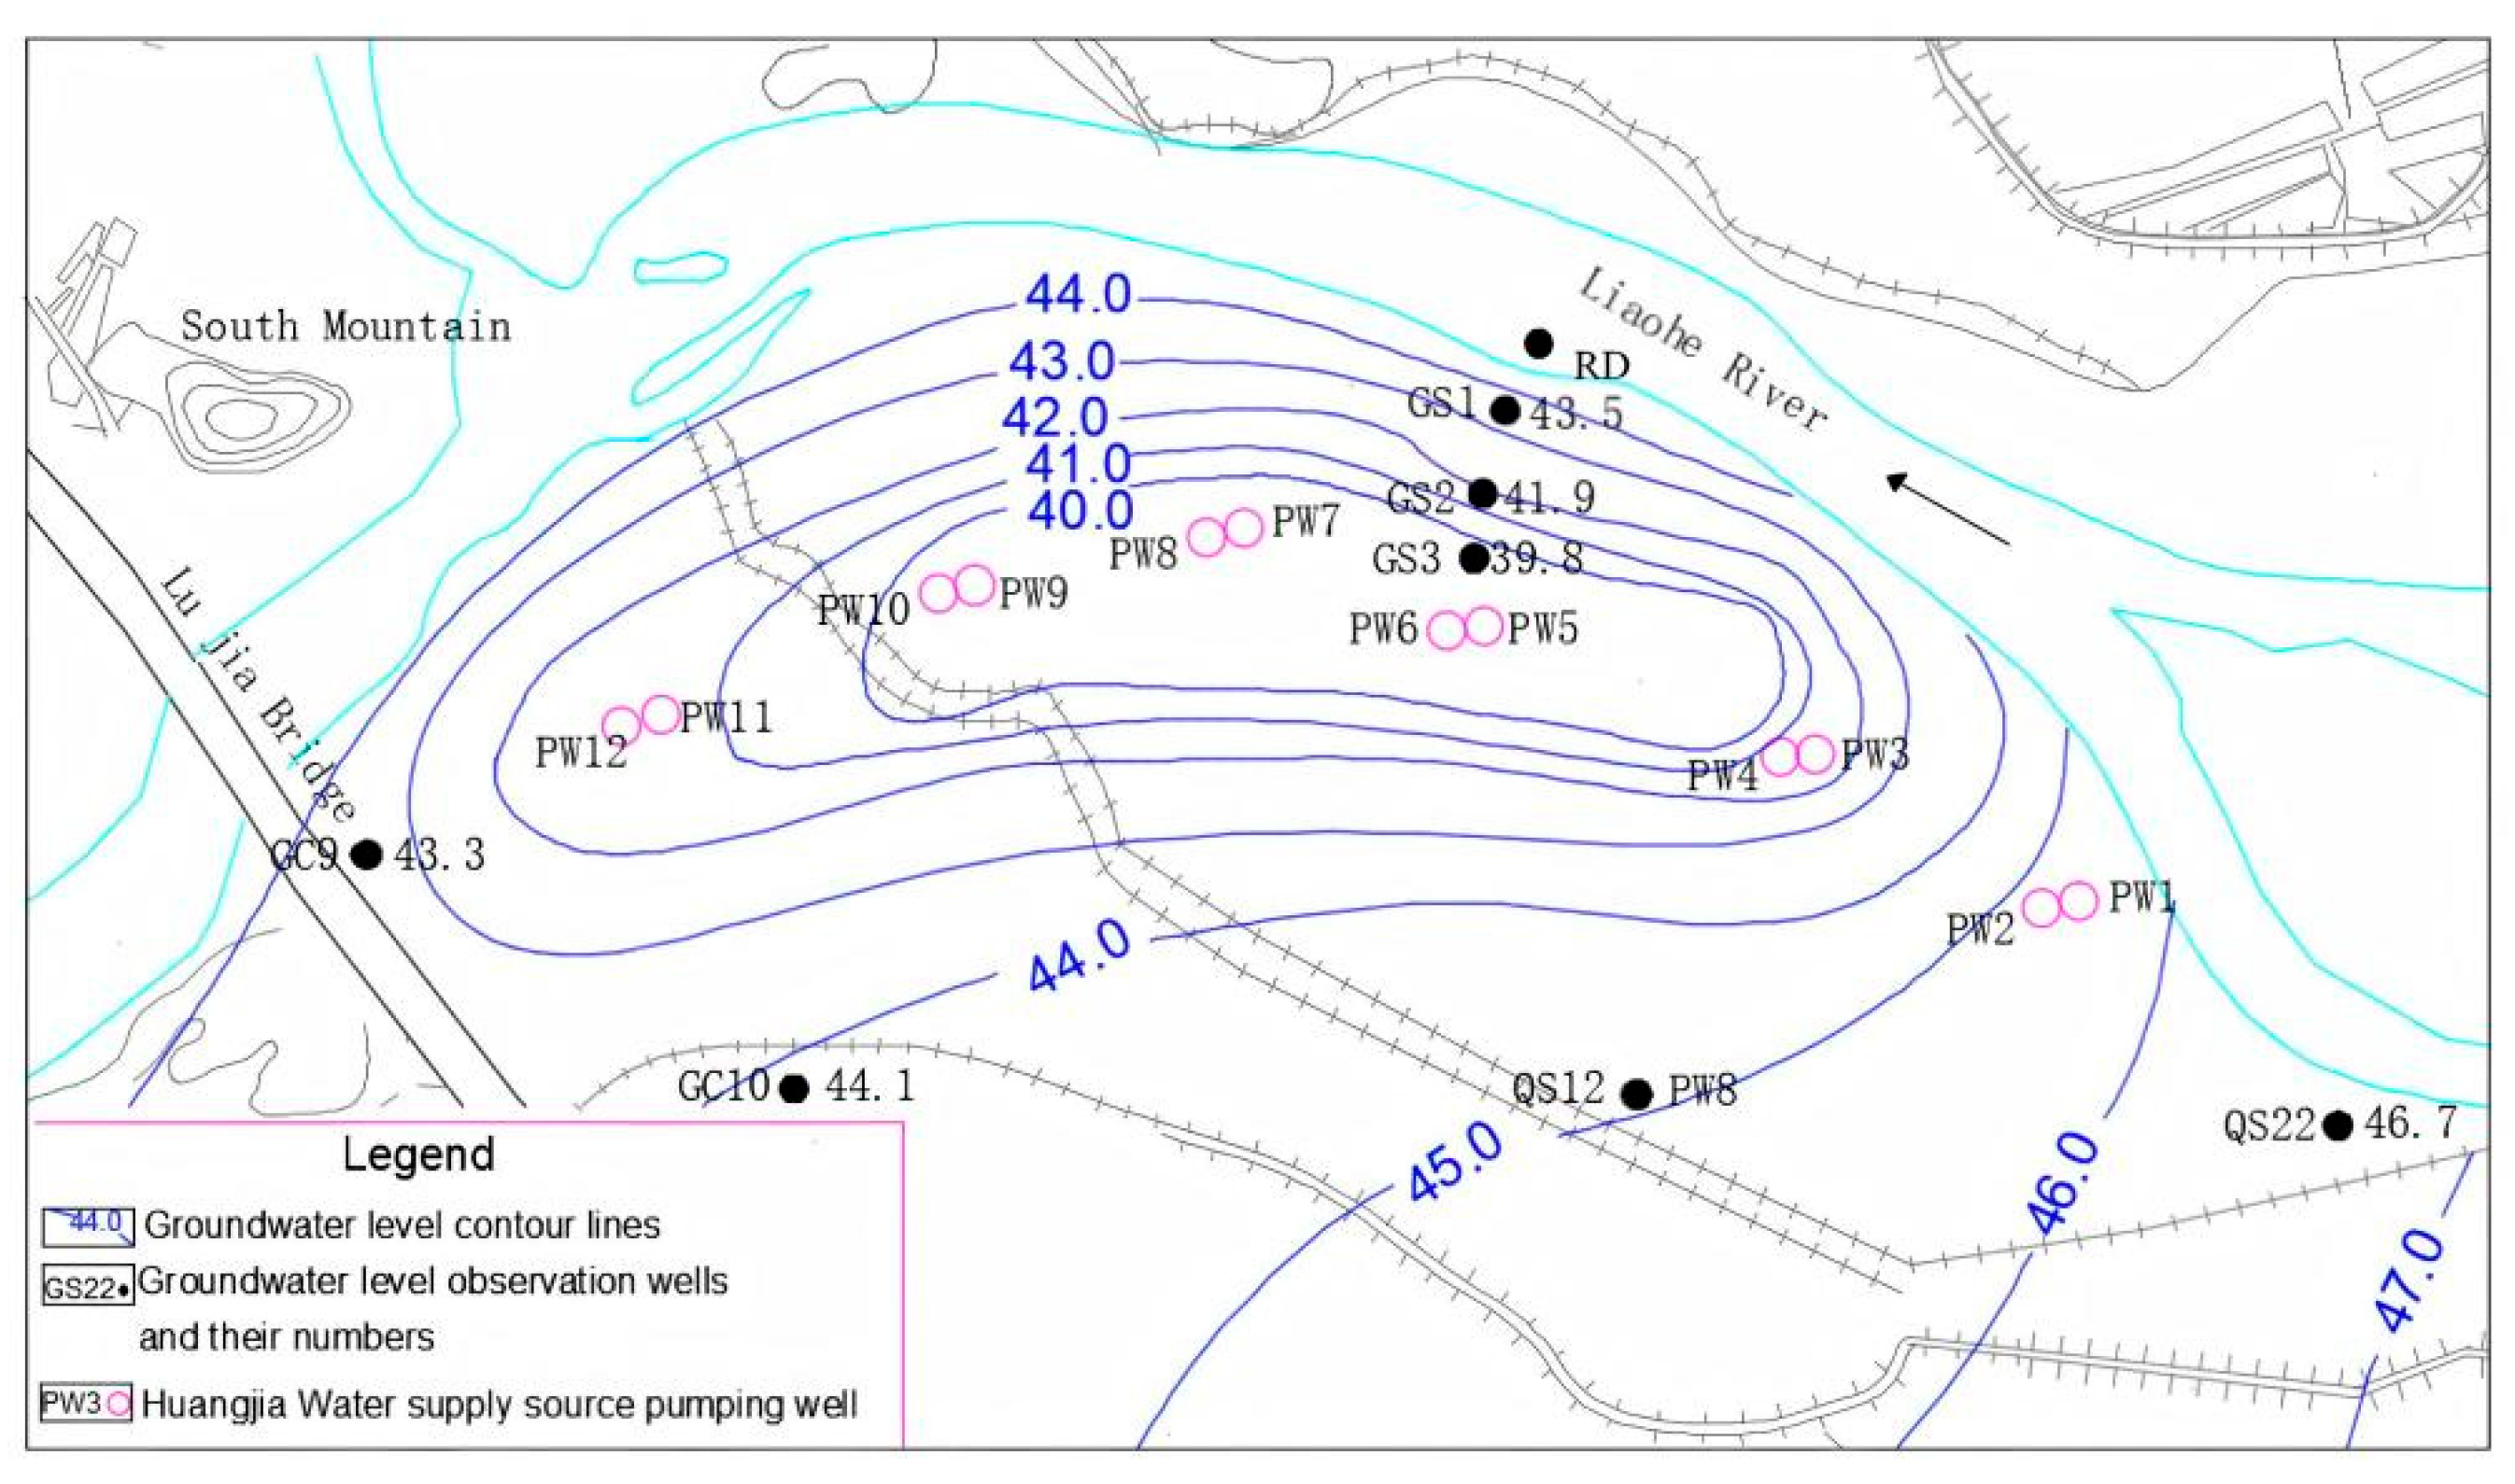 44.0
South Mountain
Liaohe River
43.0
RD
GS1 43.5
42.0
41.0
GS2 41.9
40.0
PW7
PW8
GS3 39.8
PW10 PW9
PW6 PW5
Lu jia Bridge
PW11
PW12
PW4 PW3
GC9 43.3
PW1
PW2
44.0
GC10 44.1
QS12 PW8
QS22 46.7
45.0
46.0
47.0
Legend
44.0 Groundwater level contour lines
GS22 Groundwater level observation wells
and their numbers
PW3 Huangjia Water supply source pumping well